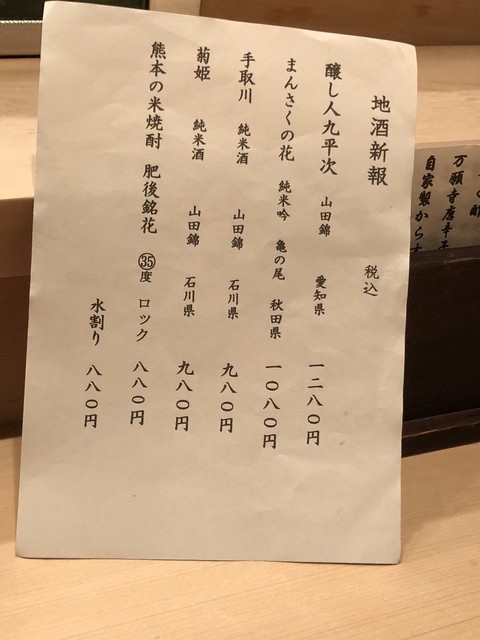 地酒新報 税込
醸し人九平次 山田錦 愛知県 一二八〇円
まんさくの花 純米吟 亀の尾 秋田県 一〇八〇円
手取川 純米酒 山田錦 石川県 九八〇円
菊姫 純米酒 山田錦 石川県 九八〇円
熊本の米焼酎 肥後銘花 ㉟度 ロック 八八〇円
水割り 八八〇円
万願寺唐辛子
自家製から